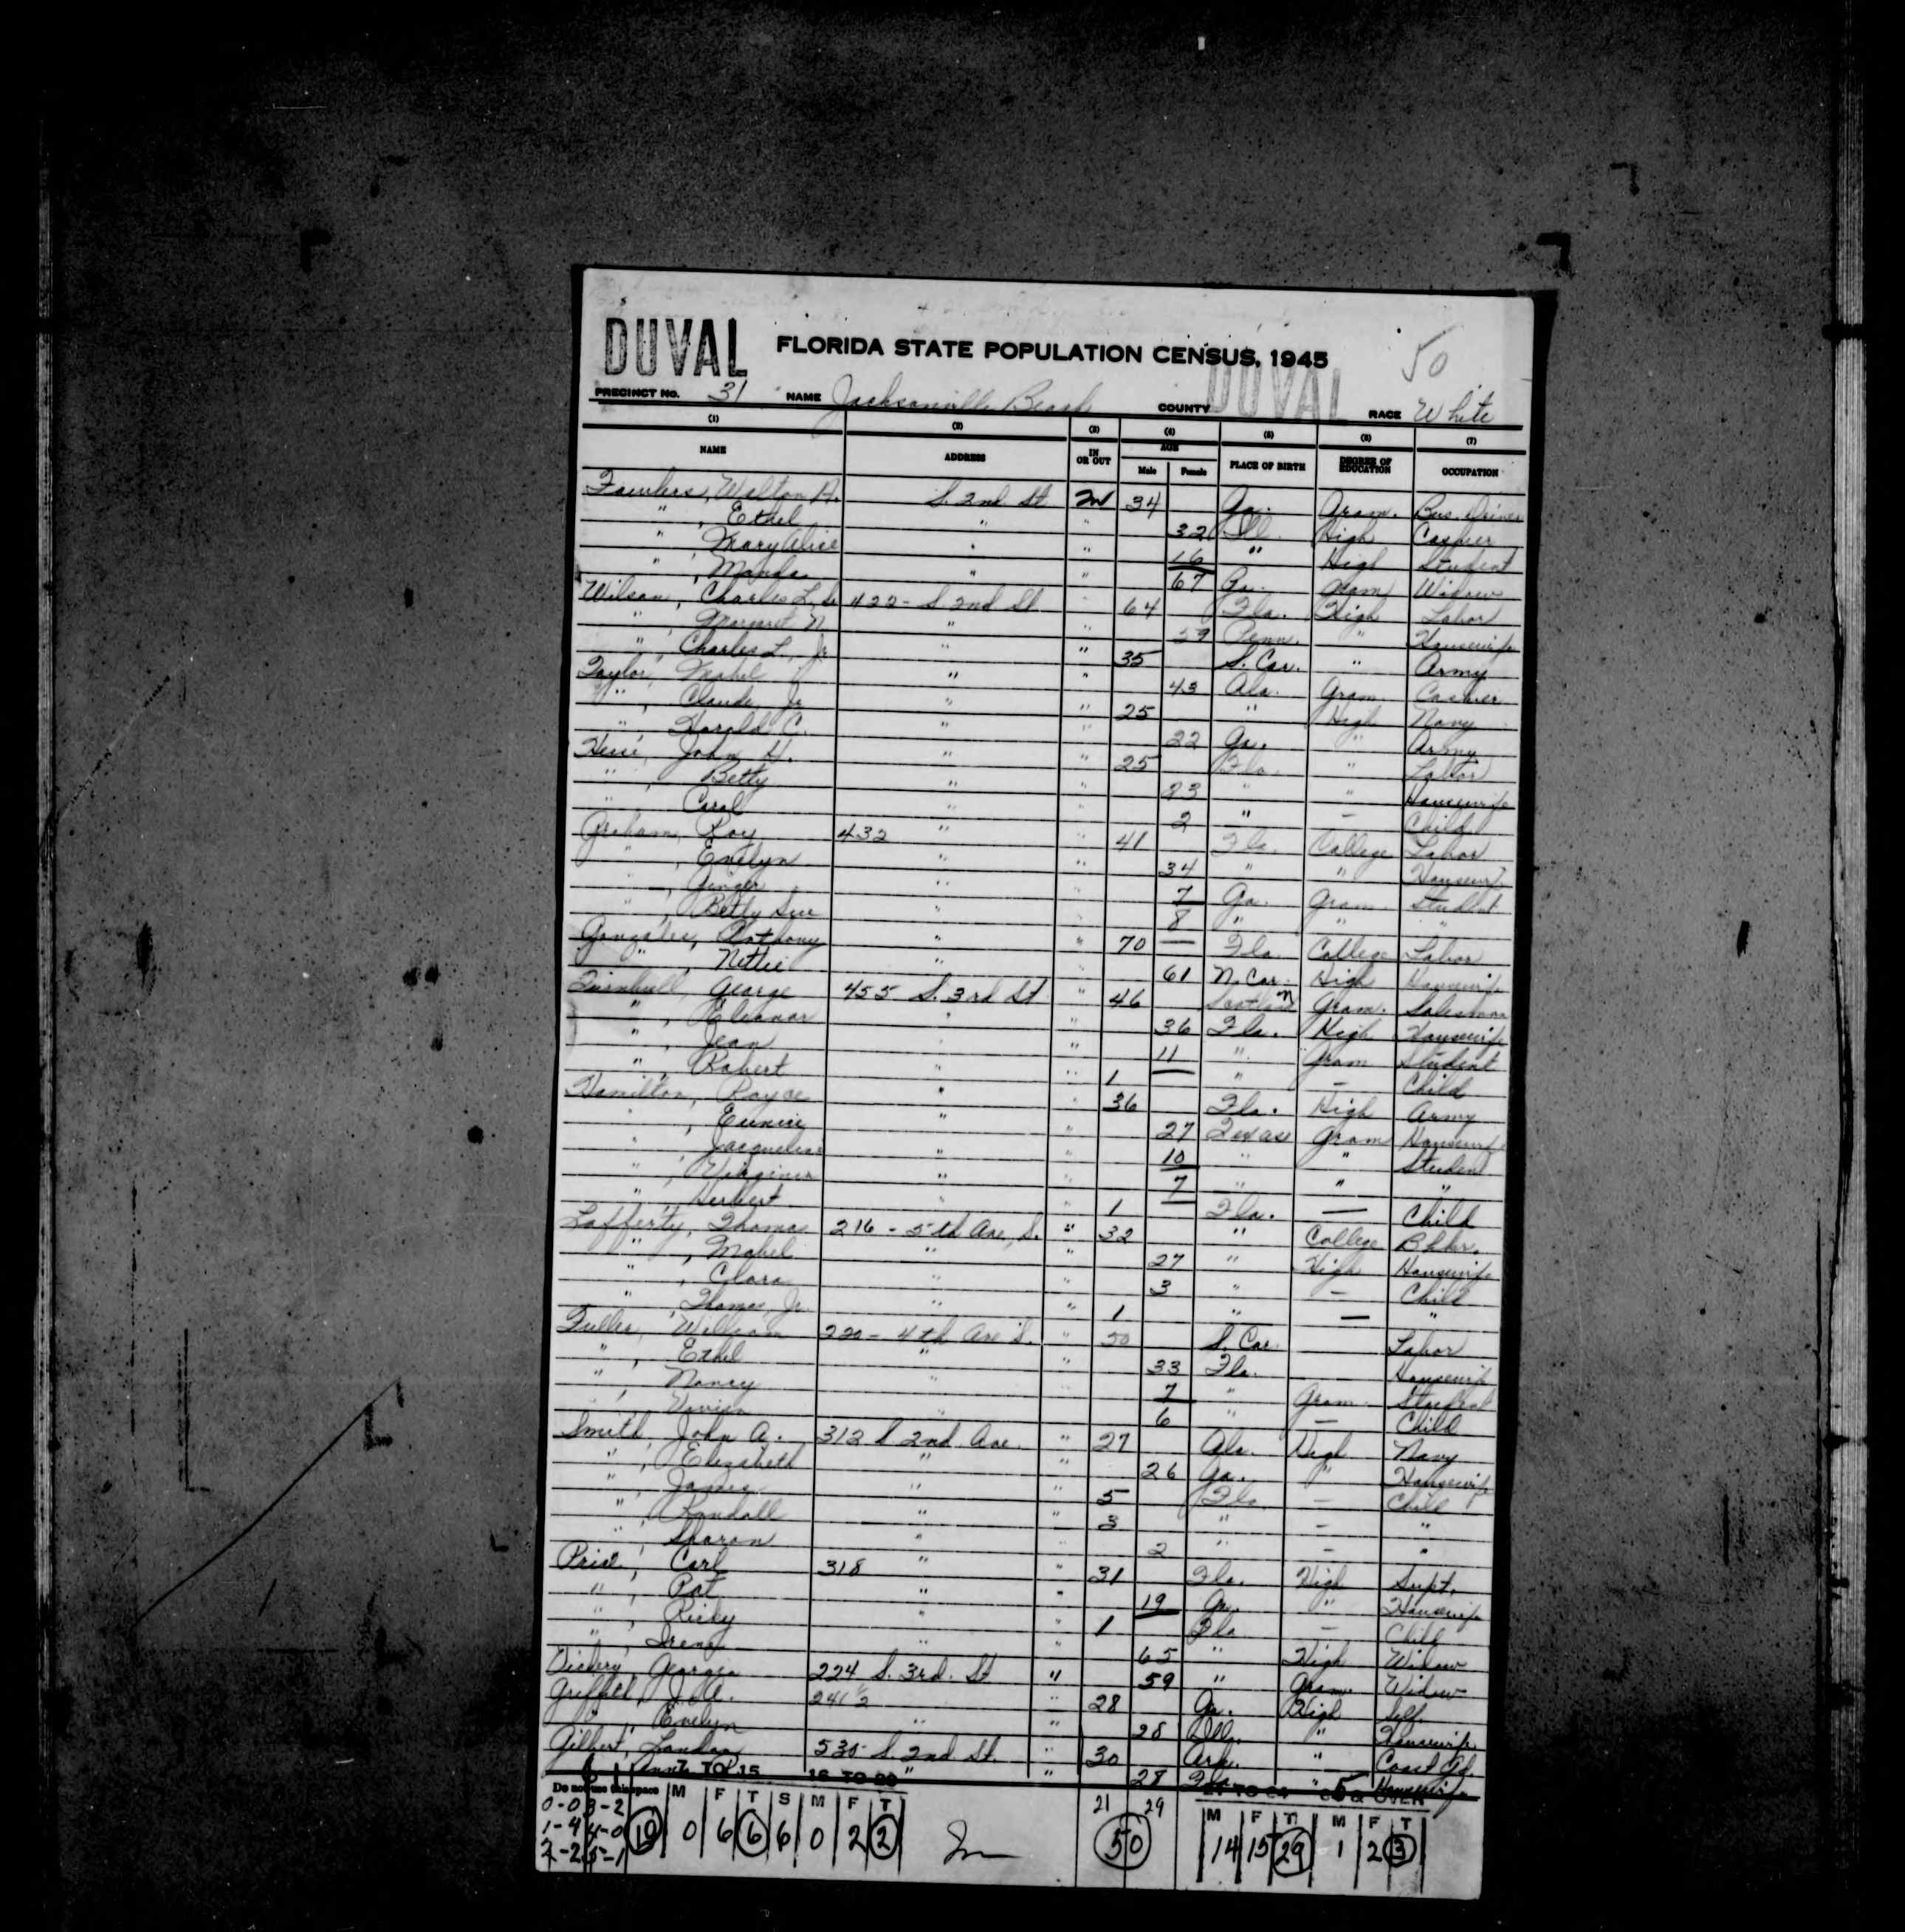 DUVAL FLORIDA STATE POPULATION CENSUS, 1945 50
PRECINCT NO. 31 NAME Jacksonville Beach COUNTY DUVAL RACE White
(1) (2) (3) (4) (5) (6) (7)
NAME ADDRESS IN OR OUT AGE Male Female PLACE OF BIRTH DEGREE OF EDUCATION OCCUPATION
Walton H. S. 2nd St In 34 Ga. Gram. Bus Driver
" , Ethel " " 32 Fl. High Cashier
" , Mary Alice " " 16 " High Student
" , " " 67 Ga. Gram Widow
Wilson, Charles L., 422 - S. 2nd St " 64 Fla. High Labor
" Margaret N " " 59 Penn. " Housewife
" , Charles L., Jr. " " 35 S. Car. " Army
Taylor, Mabel " " 43 Ala. Gram Cashier
" , Claude, Jr. " " 25 " High Navy
" Harold C. " " 22 Ga. " Army
John H. " " 25 Fla. " Labor
" , Betty " " 23 " " Housewife
" Carol " " 2 " — Child
Graham, Roy 432 " " 41 Fla. College Labor
" , Evelyn " " 34 " " Housewife
" , Ginger " " 7 Ga. Gram Student
" , Betty Sue " " 8 " " "
Gonzales, Anthony " " 70 — Fla. College Labor
" , Nettie " " 61 N. Car. High Housewife
Turnbull, George 455 S. 3rd St " 46 Scotland Gram. Salesman
" , Eleanor " " 36 Fla. High Housewife
" , Jean " " 11 " Gram Student
" , Robert " " 1 " — Child
Hamilton, Royce " " 36 Fla. High Army
" , Eunice " " 27 Texas Gram Housewife
" Jacqueline " " 10 " " Student
" , Virginia " " 7 " " "
" , Herbert " " 1 Fla. — Child
Lafferty, Thomas 216 - 5th Ave, S. " 32 " College Bkkr.
" , Mabel " " 27 " High Housewife
" , Clara " " 3 " — Child
" , Thomas, Jr. " " 1 " — "
Fuller, William 220 - 4th Ave S. " 50 S. Car. Labor
" , Ethel " " 33 Fla. Housewife
" , Nancy " " 7 " Gram. Student
" , " " 6 " — Child
Smith, John A. 312 S 2nd. Ave. " 27 Ala. High Navy
" , Elizabeth " " 26 Ga. " Housewife
" , James " " 5 Fla. — Child
" , Randall " " 3 " — "
" , Sharon " " 2 " — "
Price, Carl 318 " " 31 Fla. High Supt.
" , Pat " " 19 Ga. " Housewife
" , Ricky " " 1 Fla — Child
" , Irene " " 65 " High Widow
Vickery, Georgia 224 S. 3rd. St " 59 " Gram. Widow
Griffith, J. A. 241 1/2 " 28 Ga. High Self.
" Evelyn " " 28 Ill. " Housewife
Gilbert, Landon 535 S. 2nd St. " 30 Ark. " Coast Gd.
" " 28 Fla. " Housewife
6 TO 15 16 TO 20 21 TO 64 65 & OVER
Do not use this space M F T S M F T 21 29 M F T M F T
0-0 3-2
1-4 4-0 10 0 6 6 6 0 2 2 50 14 15 29 1 2 3
2-2 5-1